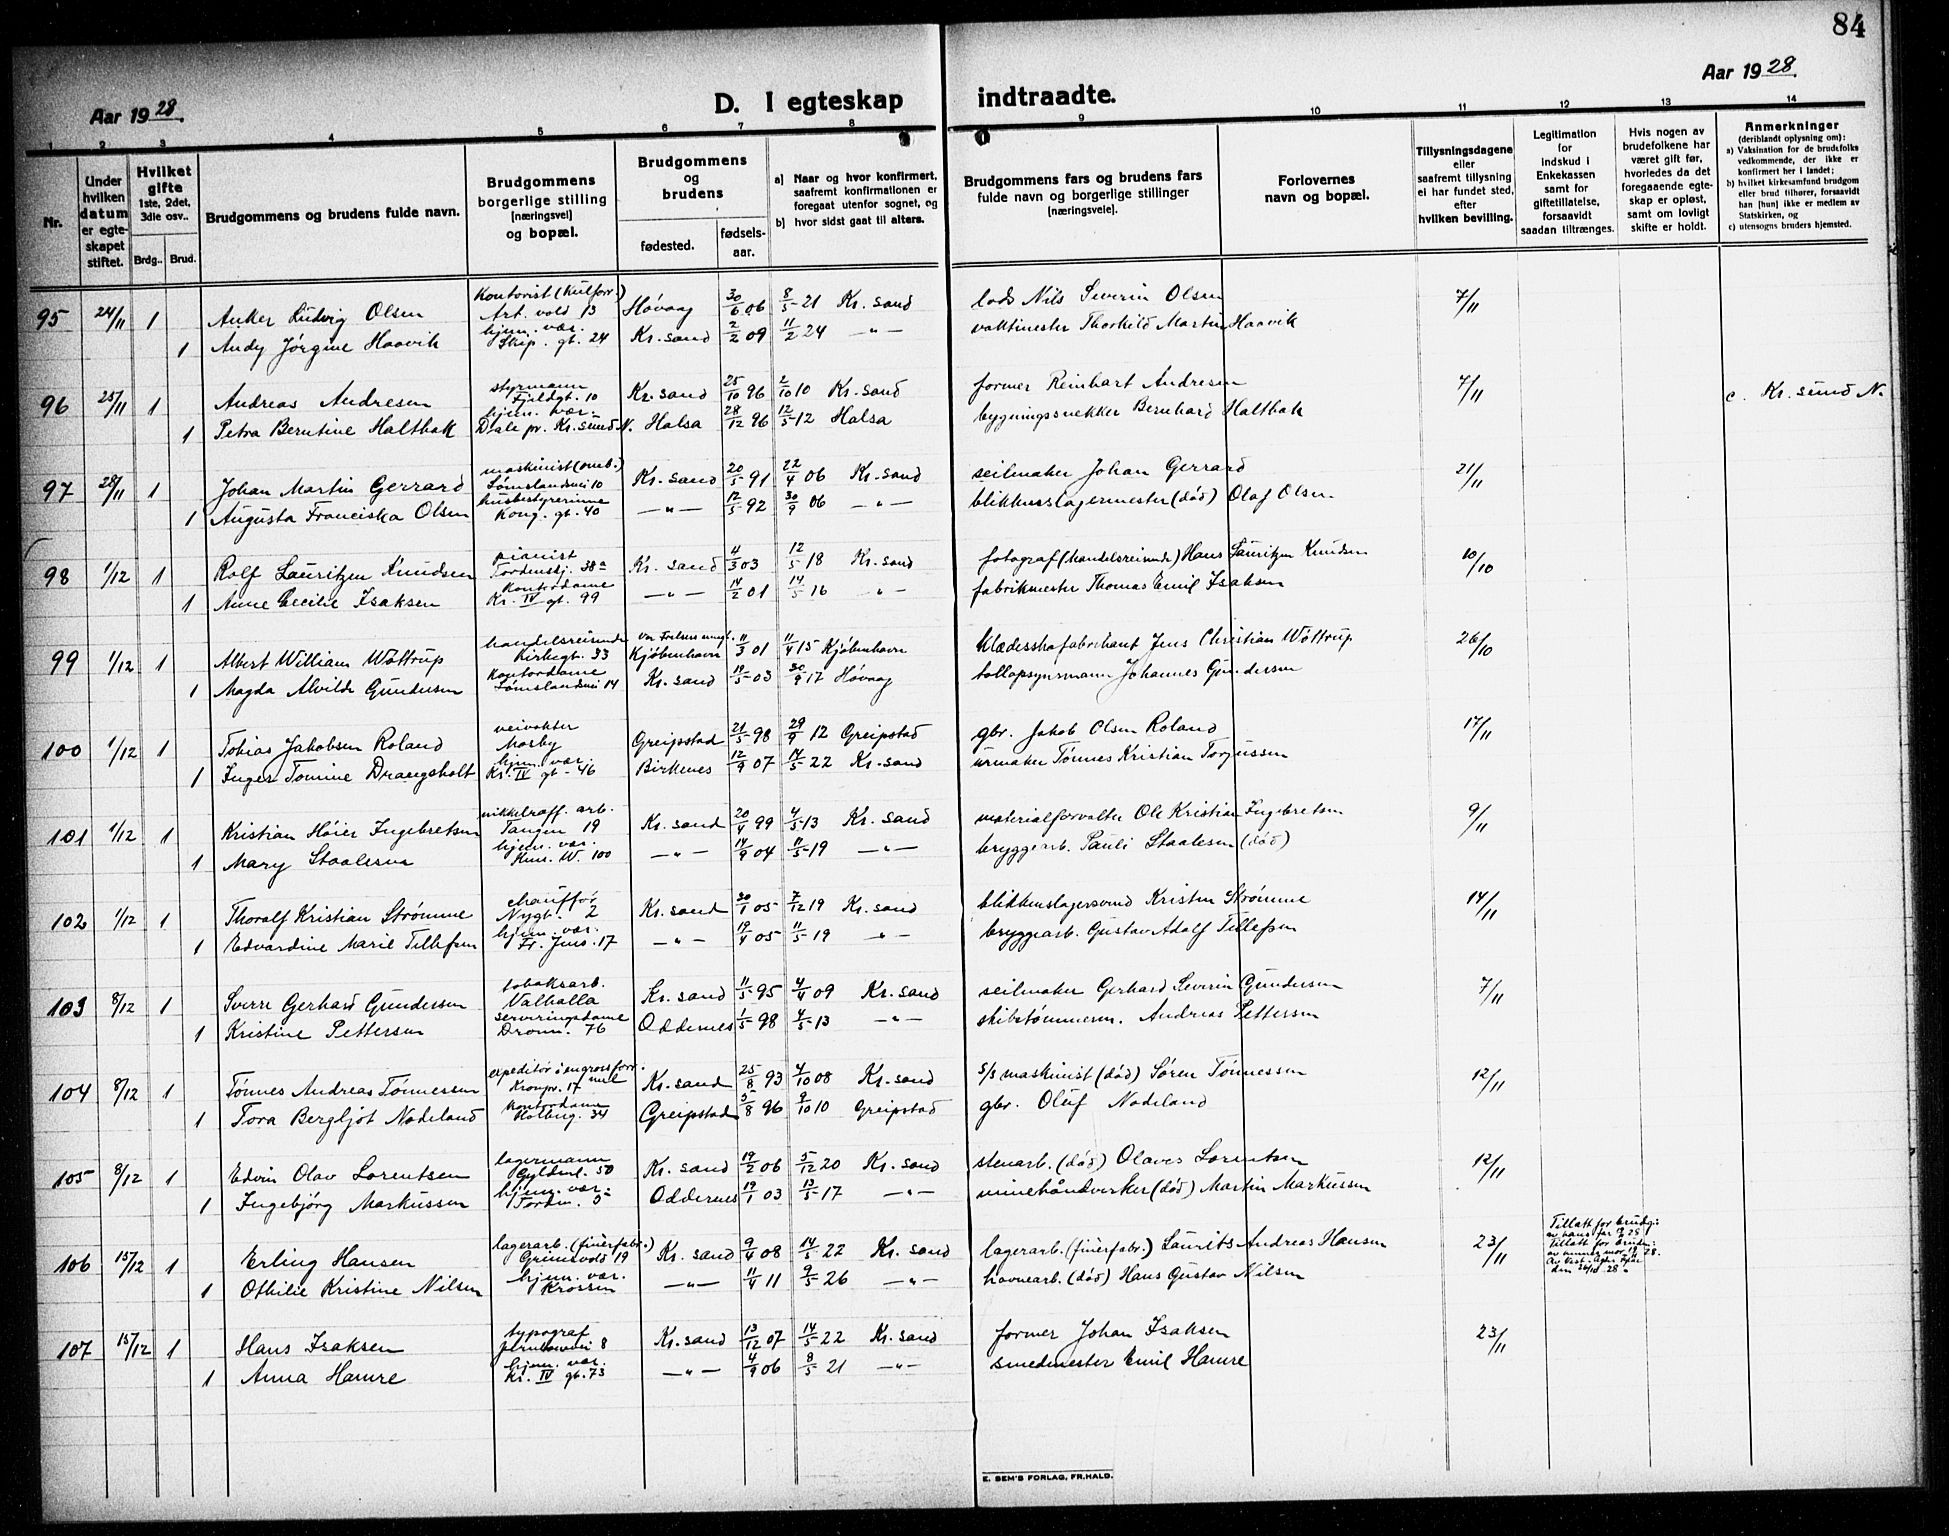 84
Aar 1928.
D. I egteskap indtraadte.
Aar 1928.
1 2 3 4 5 6 7 8 9 10 11 12 13 14
Nr.
Under hvilken datum er egteskapet stiftet.
Hvilket gifte 1ste, 2det, 3die osv..
Brdg.. Brud.
Brudgommens og brudens fulde navn.
Brudgommens borgerlige stilling (næringsvei) og bopæl.
Brudgommens og brudens
fødested. fødsels-aar.
a) Naar og hvor konfirmert, saafremt konfirmationen er foregaat utenfor sognet, og
b) hvor sidst gaat til alters.
Brudgommens fars og brudens fars fulde navn og borgerlige stillinger (næringsveie).
Forlovernes navn og bopæl.
Tillysningsdagene eller saafremt tillysning ei har fundet sted, efter hvilken bevilling.
Legitimation for indskud i Enkekassen samt for giftetillatelse, forsaavidt saadan tiltrænges.
Hvis nogen av brudefolkene har været gift før, hvorledes da det foregaaende egteskap er opløst, samt om lovligt skifte er holdt.
Anmerkninger (deriblandt oplysning om):
a) Vaksination for de brudefolks vedkommende, der ikke er konfirmert her i landet;
b) hvilket kirkesamfund brudgom eller brud tilhører, forsaavidt han [hun] ikke er medlem av Statskirken, og
c) utensogns bruders hjemsted.
95 24/11 1 Anker Ludvig Olsen Kontorist (Kulforr.) Art. vold 13 Høvaag 30/6 06 8/5-21 Kr. sand lods Nils Severin Olsen 7/11
1 Andy Jørgine Haavik hjem. vær. Skip. gt. 24 Kr. sand 2/2 09 11/2 24 -"- vaktmester Thorkild Martin Haavik
96 25/11 1 Andreas Andresen styrmann Fjeldgt. 10 Kr. sand 25/10 96 2/10 10 Kr. sand former Reinhart Andresen 7/11 c. Kr. sund N.
1 Petra Berntine Haltbak hjem. vær. Dale pr. Kr. sund N. Halsa 28/12 96 12/5-12 Halsa bygningssnekker Bernhard Haltbak
97 28/11 1 Johan Martin Gerrard maskinist (omb.) Tømslandsvei 10 Kr. sand 20/5 91 22/4 06 Kr. sand seilmaker Johan Gerrard 21/11
1 Augusta Franciska Olsen husbestyrerinne Kong. gt. 40 -"- 12/5 92 30/9 06 -"- blikkenslagermester (død) Olaf Olsen
98 1/12 1 Rolf Lauritzen Knudsen pianist Tordenskj. 38a Kr. sand 4/3 03 12/5 18 Kr. sand fotograf (handelsreisende) Hans Lauritzen Knudsen 10/10
1 Anne Cecilie Isaksen Kontordame Kr. IV gt. 99 -"- 14/2 01 14/5 16 -"- fabrikmester Thomas Emil Isaksen
99 1/12 1 Albert William Wøttrup handelsreisende Kirkegt. 33 Vor Frelsers mngt. Kjøbenhavn 11/3 01 11/4 15 Kjøbenhavn Klædesskofabrikant Jens Christian Wøttrup 26/10
1 Magda Alvilde Gundersen Kontordame Tømslandsvei 14 Kr. sand 19/5-03 30/9 17 Høvaag tollopsynsmann Johannes Gundersen
100 1/12 1 Tobias Jakobsen Roland veivokter Mosby Greipstad 21/5 98 29/9 12 Greipstad gbr. Jakob Olsen Roland 17/11
1 Inger Tomine Drangsholt hjem. vær. Kr. IV gt - 46 Birkenes 12/9 07 14/5 22 Kr. sand urmaker Tønnes Kristian Torjussen
101 1/12 1 Kristian Høier Ingebretsen nikkelraff. arb. Tangen 19 Kr. sand 20/4 99 4/5-13 Kr. sand materialforvalter Ole Kristian Ingebretsen 9/11
1 Mary Staalesen hjem. vær. Knu. W. 100 -"- 14/9 04 11/5-19 -"- bryggearb. Pauli Staalesen (død)
102 1/12 1 Thoralf Kristian Strømme chauffør Nygt. 2 Kr. sand 30/1 05 7/12 19 Kr. sand blikkenslagersvend Kristen Strømme 14/11
1 Edvardine Marie Tellefsen hjem. vær. Fr. Jens. 17 -"- 19/4 05 11/5-19 -"- bryggearb. Gustav Adolf Tellefsen
103 8/12 1 Sverre Gerhard Gundersen tobaksarb. Valhalla Kr. sand 11/5 95 4/4 09 Kr. sand seilmaker Gerhard Severin Gundersen 7/11
1 Kristine Pettersen serveringsdame Dronn. 76 Oddernes 1/5-98 4/5-13 -"- skibstømmerm. Andreas Pettersen
104 8/12 1 Tønnes Andreas Tønnessen expeditør i engrosforr. mel Kronpr. 17 Kr. sand 25/8 93 4/10 08 Kr. sand S/S maskinist (død) Søren Tønnessen 12/11
1 Tora Bergljot Nodeland kontordame Holbrg. 34 Greipstad 5/8 96 9/10 10 Greipstad gbr. Oluf Nodeland
105 8/12 1 Edvin Olav Lorentsen lagermann Gyldenl. 50 Kr. sand 19/2 06 5/12 20 Kr. sand stenarb. (død) Olaves Lorentsen 12/11
1 Ingebjørg Markussen hjem. vær. Tordn. 5 Oddernes 19/1 03 13/5-17 -"- minehåndverker (død) Martin Markussen
106 15/12 1 Erling Hansen lagerarb. (finérfabr.) Grimsvold 19 Kr. sand 9/4 08 14/5 22 Kr. sand lagerarb. (finérfabr.) Laurits Andreas Hansen 23/11 Tillatt for brudg: av hans far
Tillatt for bruden: av hennes mor
1 Othilie Kristine Nilsen hjem. vær. Krossen -"- 11/4 11 9/5-26 -"- havnearb. (død) Hans Gustav Nilsen
107 15/12 1 Hans Isaksen typograf 8 Kr. sand 13/12 07 14/5 22 Kr. sand former Johan Isaksen 23/11
1 Anna Hamre hjem. vær. Kr. IV gt. 73 -"- 4/9 06 8/5 21 -"- smedmester Emil Hamre
E. SEM'S FORLAG, FR.HALD.